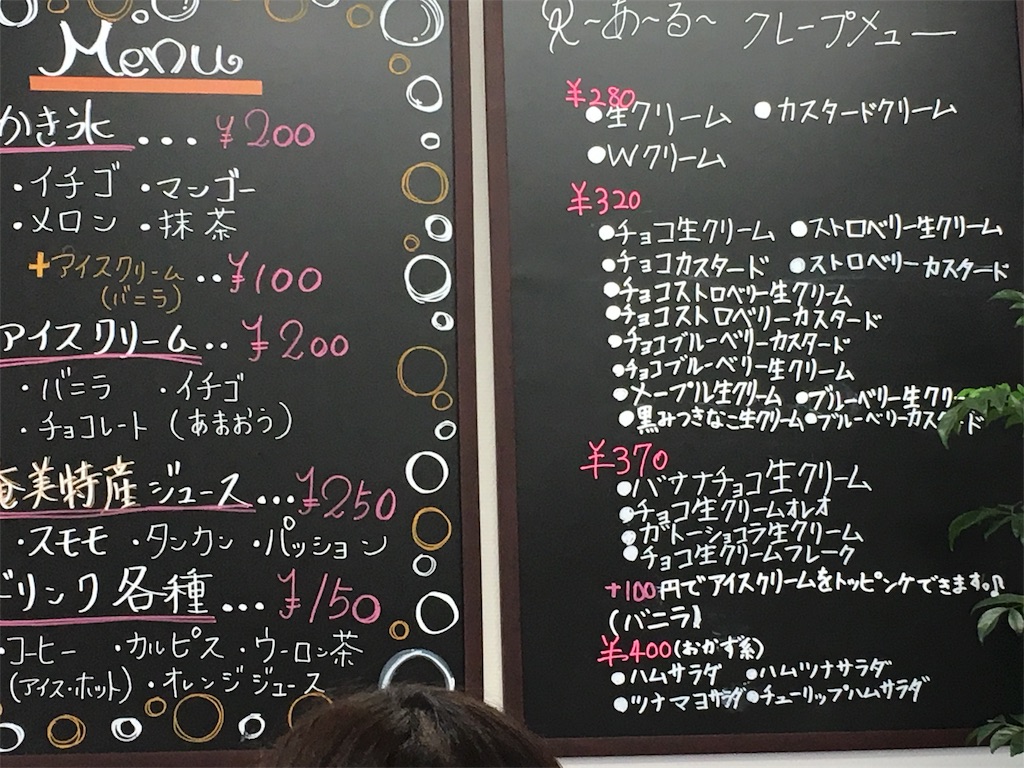 Menu
かき氷 ... ¥200
・イチゴ ・マンゴー
・メロン ・抹茶
+アイスクリーム ‥¥100
(バニラ)
アイスクリーム‥ ¥200
・バニラ ・イチゴ
・チョコレート (あまおう)
奄美特産ジュース...¥250
・スモモ ・タンカン ・パッション
ドリンク各種... ¥150
・コーヒー ・カルピス ・ウーロン茶
(アイス・ホット) ・オレンジジュース
R～あ～る～ クレープメニュー
¥280
●生クリーム ●カスタードクリーム
●Wクリーム
¥320
●チョコ生クリーム ●ストロベリー生クリーム
●チョコカスタード ●ストロベリーカスタード
●チョコストロベリー生クリーム
●チョコストロベリーカスタード
●チョコブルーベリーカスタード
●チョコブルーベリー生クリーム
●メープル生クリーム ●ブルーベリー生クリー
●黒みつきなこ生クリーム●ブルーベリーカスタード
¥370
●バナナチョコ生クリーム
●チョコ生クリームオレオ
●ガトーショコラ生クリーム
●チョコ生クリームフレーク
+100円でアイスクリームをトッピングできます。♪
(バニラ)
¥400(おかず系)
●ハムサラダ ●ハムツナサラダ
●ツナマヨサラダ●チューリップハムサラダ